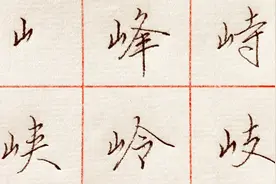 山 峰 峙
峡 岭 岐